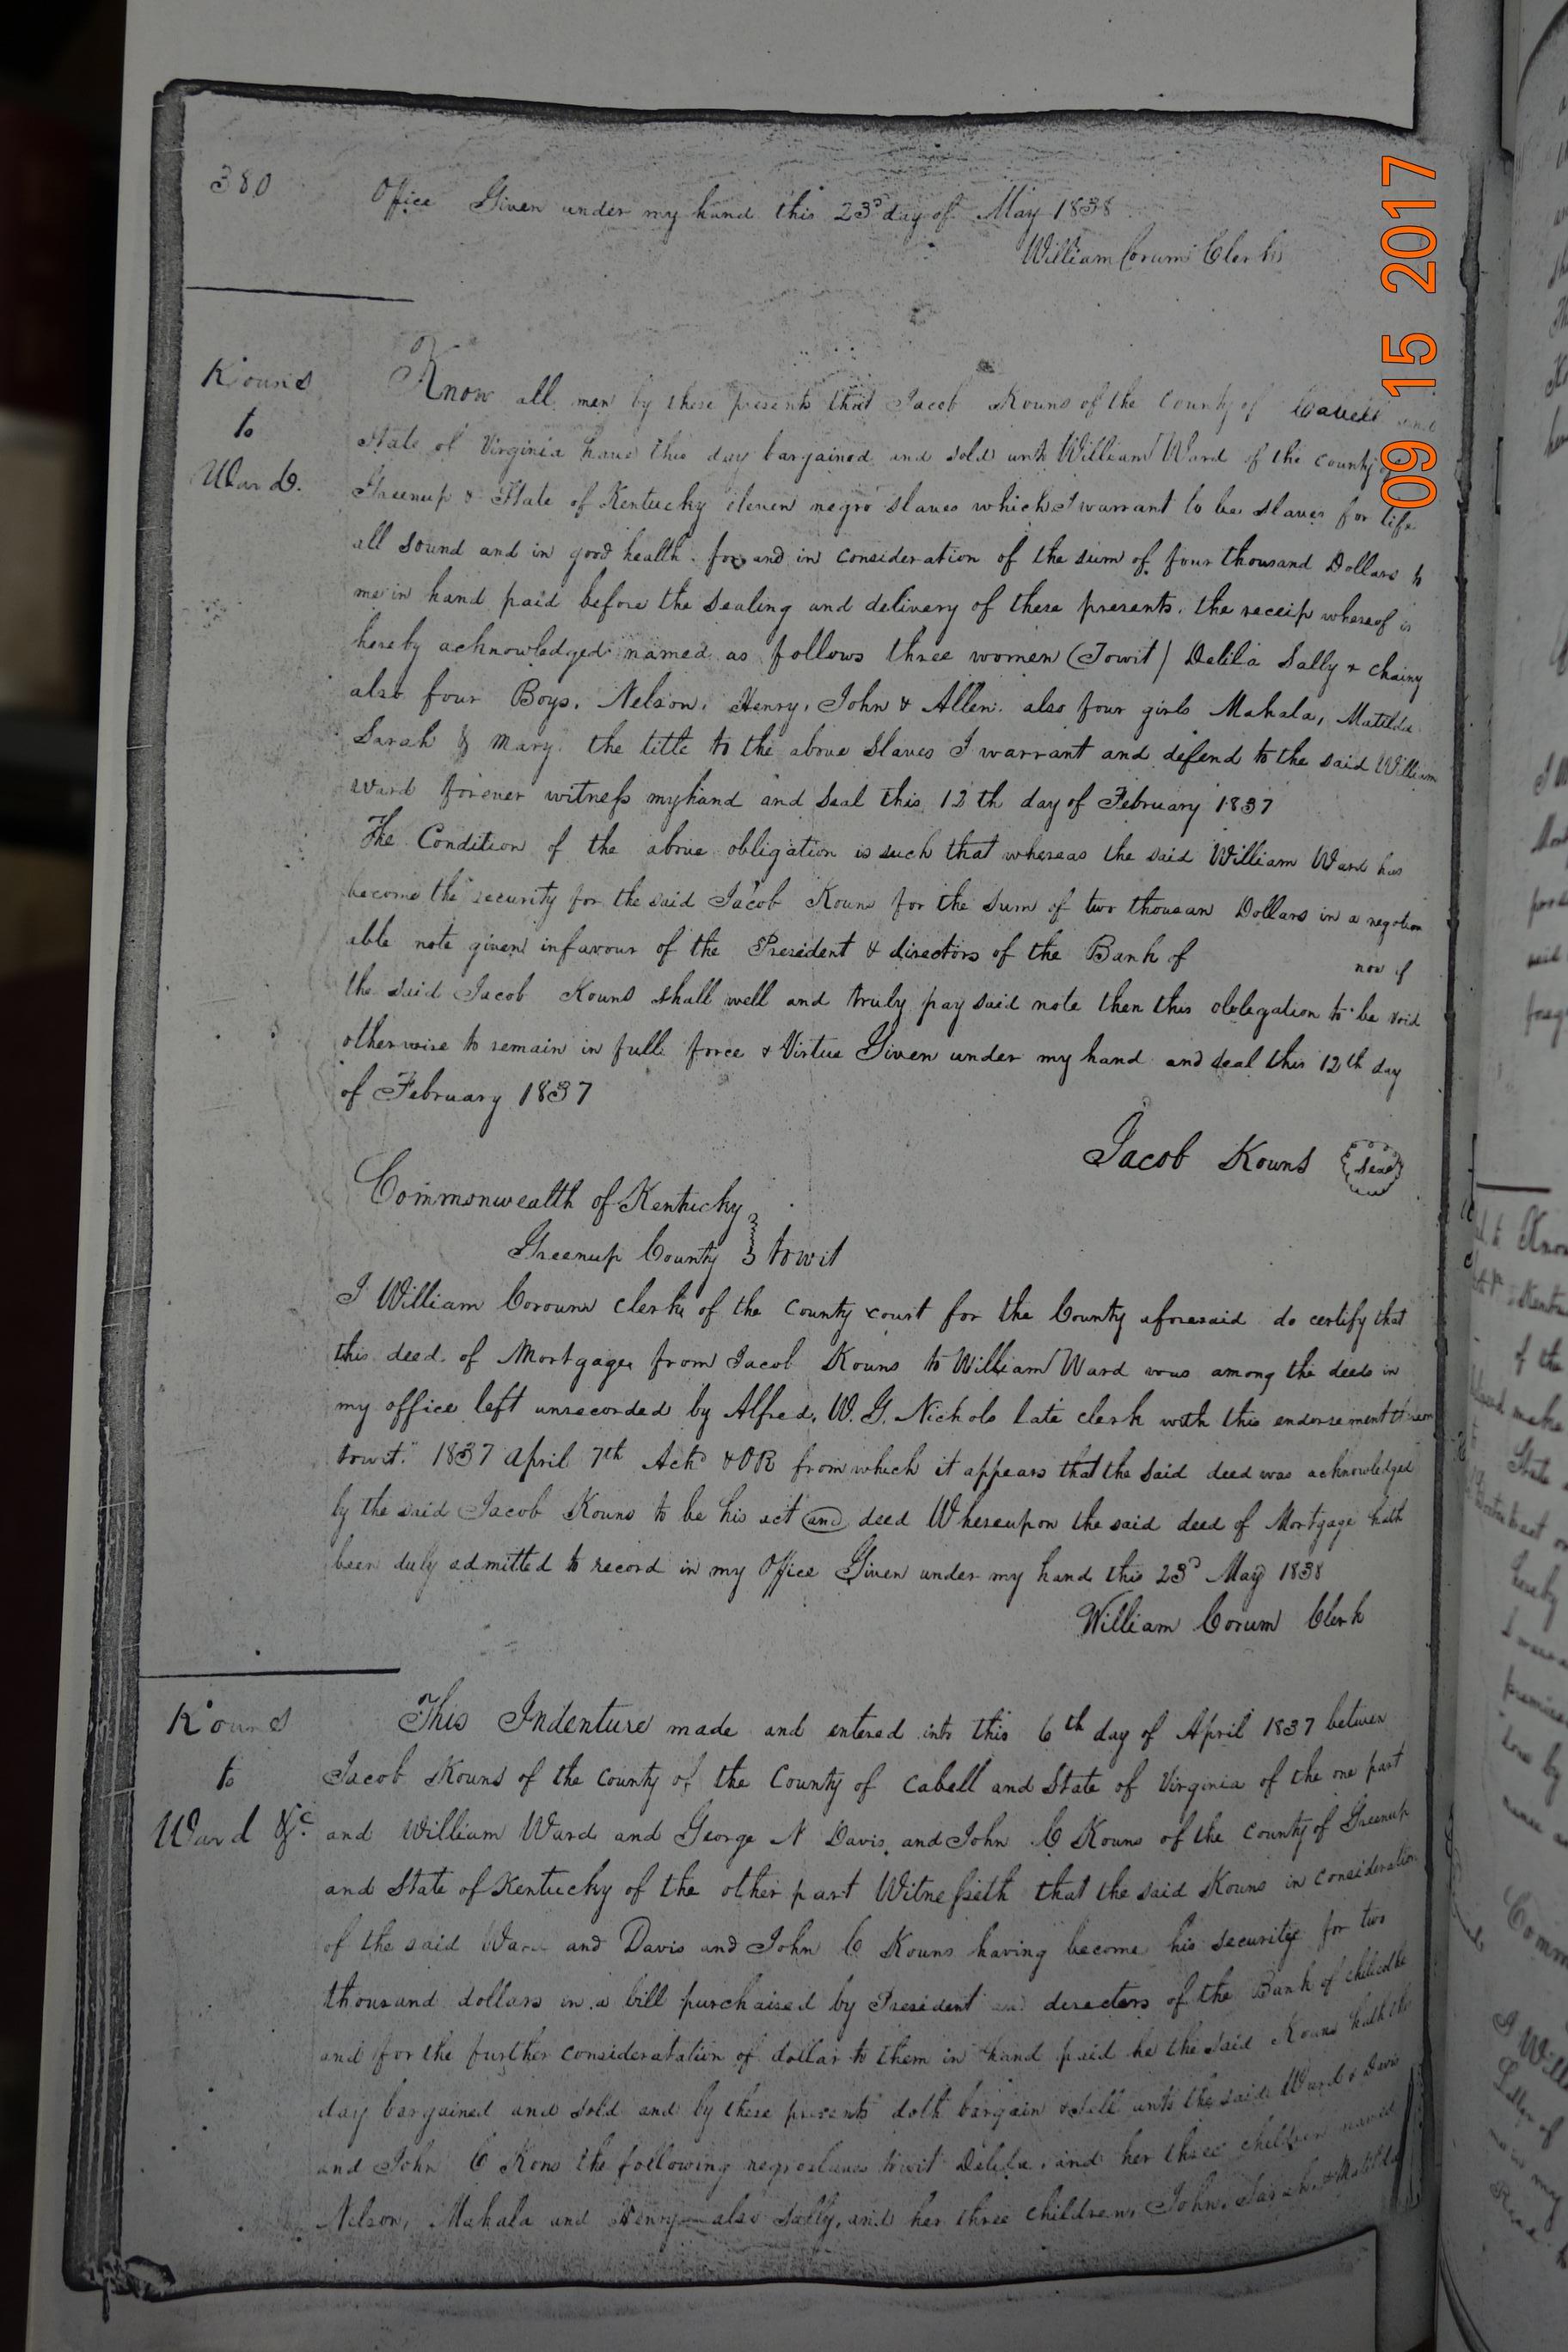 380
Office Given under my hand this 23d day of May 1838
William Corum Clerk
Kouns
to
Ward.
Know all men by these presents that Jacob Kouns of the County of Cabell and
State of Virginia have this day bargained and sold unto William Ward of the county of
Greenup & State of Kentucky eleven negro slaves which I warrant to be slaves for life
all sound and in good health. for and in consideration of the sum of four thousand Dollars to
me in hand paid before the sealing and delivery of these presents. the receip whereof is
hereby acknowledged named as follows three women (Towit) Delila Sally & Chainy
also four Boys. Nelson. Henry. John & Allen. also four girls Mahala, Matilda
Sarah & Mary. the title to the above slaves I warrant and defend to the said William
Ward forever witness my hand and seal this 12th day of February 1837
The Condition of the above obligation is such that whereas the said William Ward has
become the security for the said Jacob Kouns for the sum of two thousan Dollars in a negotion
able note given in favour of the President & directors of the Bank of now if
the said Jacob Kouns shall well and truly pay said note then this oblegation to be void
otherwise to remain in full force & Virtue Given under my hand and seal this 12th day
of February 1837
Jacob Kouns Seal
Commonwealth of Kentucky
Greenup County } towit
I William Coroum clerk of the county court for the County aforesaid do certify that
this deed of Mortgage from Jacob Kouns to William Ward was among the deeds in
my office left unrecorded by Alfred. W. G. Nichols late clerk with this endorsement thereon
towit." 1837 April 7th Ackd & OR from which it appears that the said deed was acknowledged
by the said Jacob Kouns to be his act and deed Whereupon the said deed of Mortgage hath
been duly admitted to record in my Office Given under my hand this 23d May 1838
William Corum Clerk
Kouns
to
Ward &c
This Indenture made and entered into this 6th day of April 1837 between
Jacob Kouns of the County of the County of Cabell and State of Virginia of the one part
and William Ward and George N Davis. and John C Kouns of the County of Greenup
and State of Kentucky of the other part Witnesseth that the said Kouns in consideration
of the said Ward and Davis and John C Kouns having become his security for two
thousand dollars in a bill purchased by President and directors of the Bank of chilicothe
and for the further consideratation of dollar to them in hand paid he the said Kouns hath this
day bargained and sold and by these presents doth bargain & sell unto the said Ward & Davis
and John C Kons the following negroslaves towit Delila, and her three children named
Nelson, Mahala and Henry also Sally, and her three children, John, Sarah & Matilda
09 15 2017